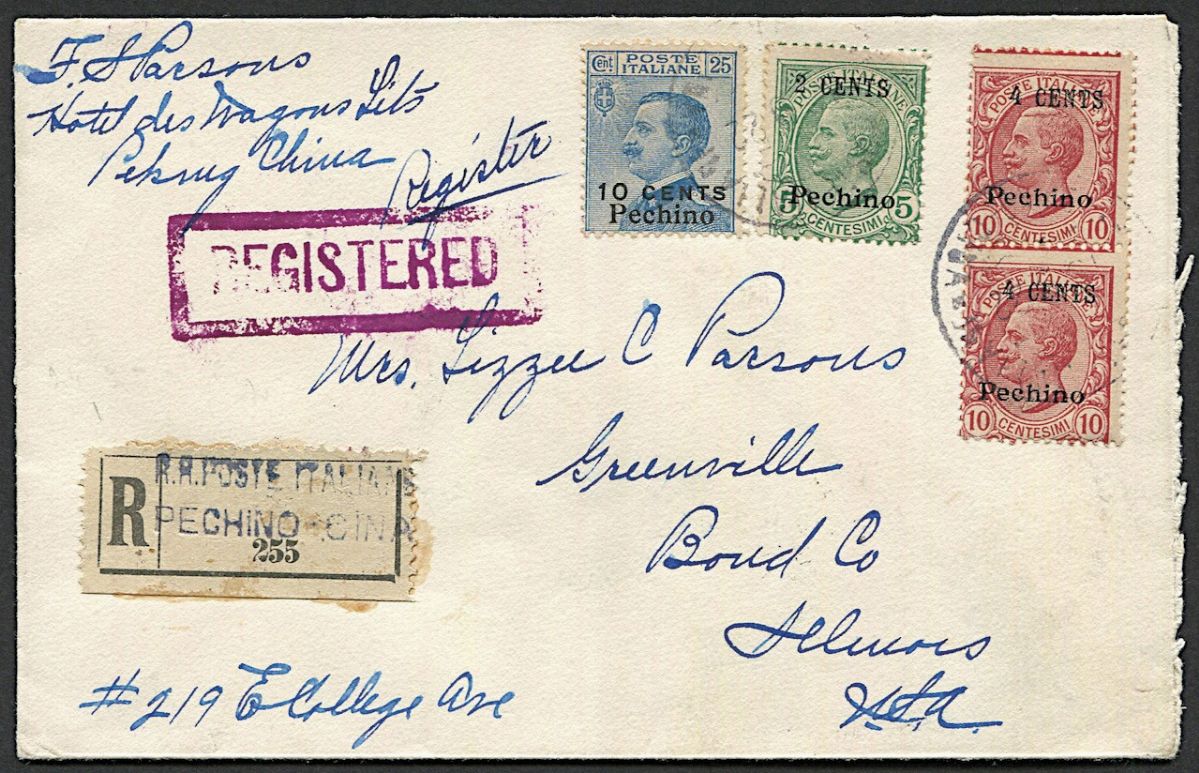 F. S Parsons
Hotel des Wagons Lits
Peking China
Register
REGISTERED
Cent POSTE ITALIANE 25
10 CENTS
Pechino
2 CENTS
Pechino
5 CENTESIMI 5
POSTE ITALIANE
4 CENTS
Pechino
10 CENTESIMI 10
POSTE ITALIANE
4 CENTS
Pechino
10 CENTESIMI 10
Mrs. Lizzee C Parsons
Greenville
Bond Co
Illinois
U.S.A.
R
R.R. POSTE ITALIANE
PECHINO-CINA
255
#219 E College Ave